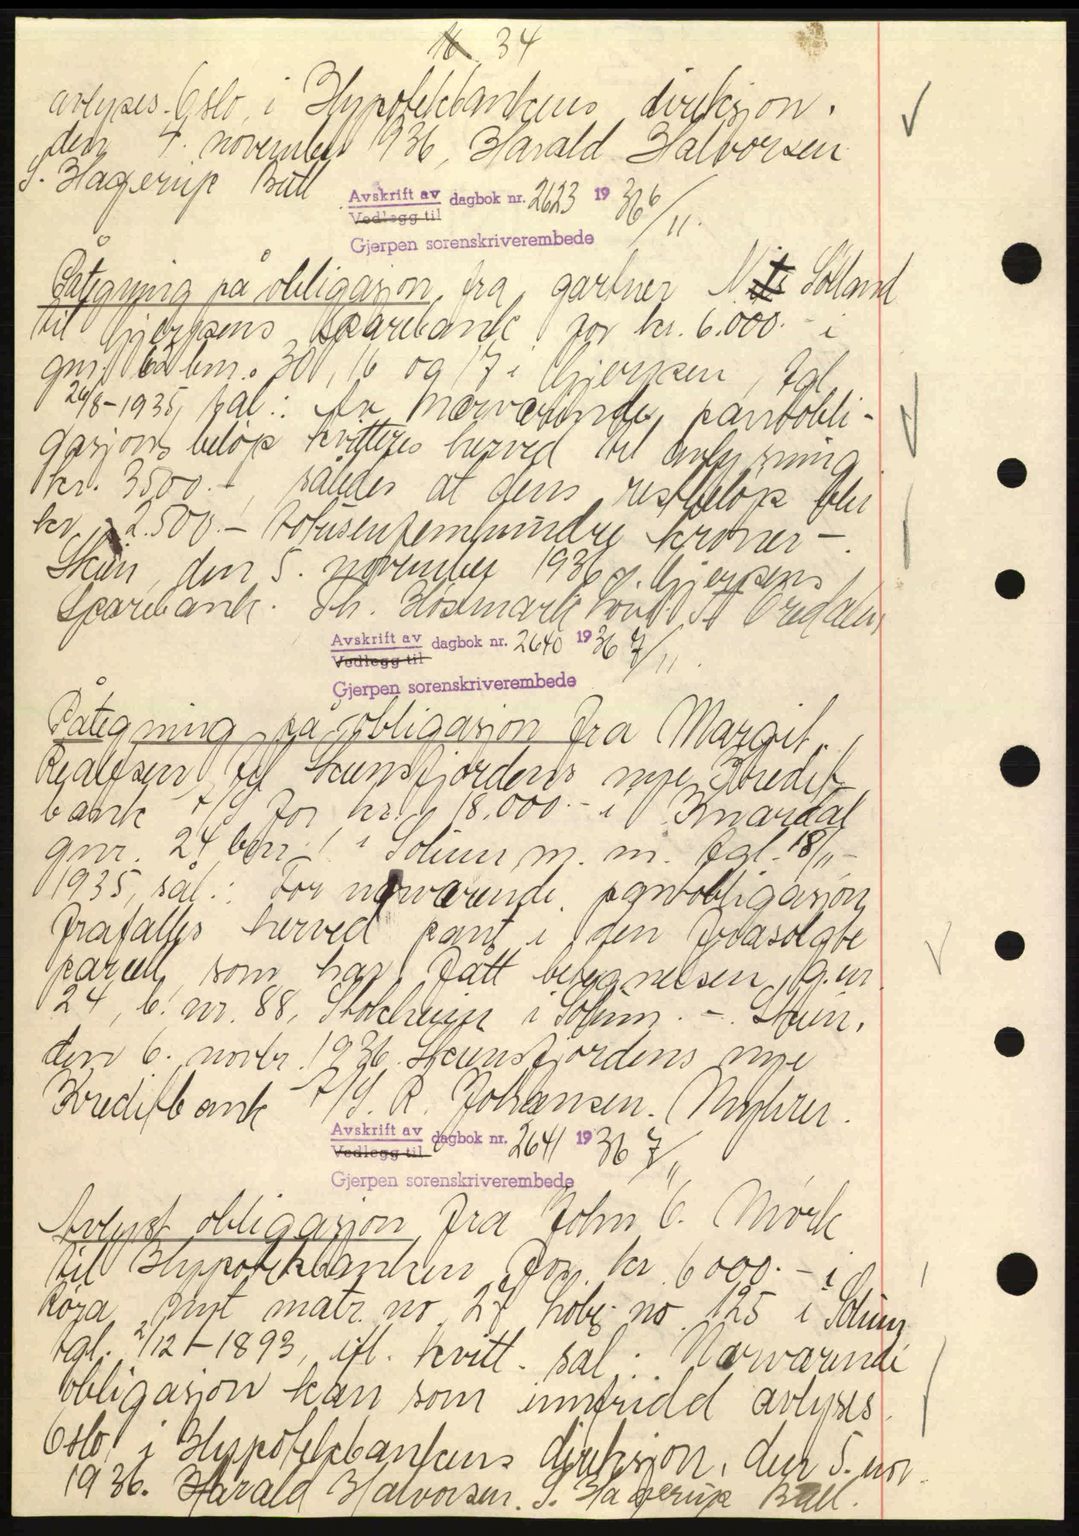 34
avlyses. Oslo, i Hypotekbankens direksjon.
den 4. november 1936, Harald Halvorsen
S. Hagerup Bull
Avskrift av
Vedlegg til
dagbok nr. 2623 1936 6/11.
Gjerpen sorenskriverembede
Påtegning på obligasjon fra gartner Nils Solland
til Gjerpens sparebank for kr. 6.000.- i
gnr. 62 bnr. 30, 16 og 17 i Gjerpen, tgl.
26/8-1935, sål.: Av nærværende pantobli-
gasjons beløp kvitteres herved til avlysning
kr. 3500.-, således at dens restbeløp blir
kr. 2.500.- totusenfemhundre kroner -.
Skien, den 5. november 1936. p. Gjerpens
Sparebank. Th.
Avskrift av
Vedlegg til
dagbok nr. 2640 1936 7/11.
Gjerpen sorenskriverembede
Påtegning på obligasjon fra Margit
Realfsen til Skiensfjordens nye Kredit-
bank A/S for kr. 18.000.- i Smardal
gnr. 24 bnr. 1 i Solum m. m. tgl. 18/11-
1935, sål.: For nærværende pantobligasjon
frafalles herved pant i den frasolgte
parcell, som har fått betegnelsen, g.nr.
24, b. nr. 88, i Solum. -. Skien,
den 6. novbr. 1936. Skiensfjordens nye
Kreditbank A/S. R. Johansen. Myhrer.
Avskrift av
Vedlegg til
dagbok nr. 2641 1936 7/11
Gjerpen sorenskriverembede
Avlyst obligasjon fra John C. Mørk
til Hypotekbanken for kr. 6000.- i
Røra matr. no 27 løbe no 125 i Solum
tgl. 2/12-1893, ifl. kvitt. sål: Nærværende
obligasjon kan som innfridd avlyses.
Oslo, i Hypotekbankens direksjon, den 5. nov.
1936. Harald Halvorsen. S. Hagerup Bull.